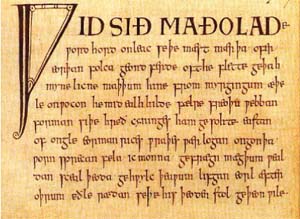 ǷIDSIÐ MAÐOLADE·
ƿord hord onleac seþe mæst mærþa ofer
eorþan folca geond ferde ofthe flette geþah
mynelicne maþþum hine from myrgingum æþe
le onƿocon he mid ealhhilde fælre freoþu ƿebban
forman siþe hreð cyninges ham gesohte eastan
of ongle eorman rices ƿraþes ƿærlogan ongon þa
ƿorn sprecan fela ic monna gefrægn mægþum ƿeal
dan sceal þeoda gehƿylc þeaƿum lifgan eorl æfter
oþrum eðle rædan seþe his þeoden stol geþeon ƿile·